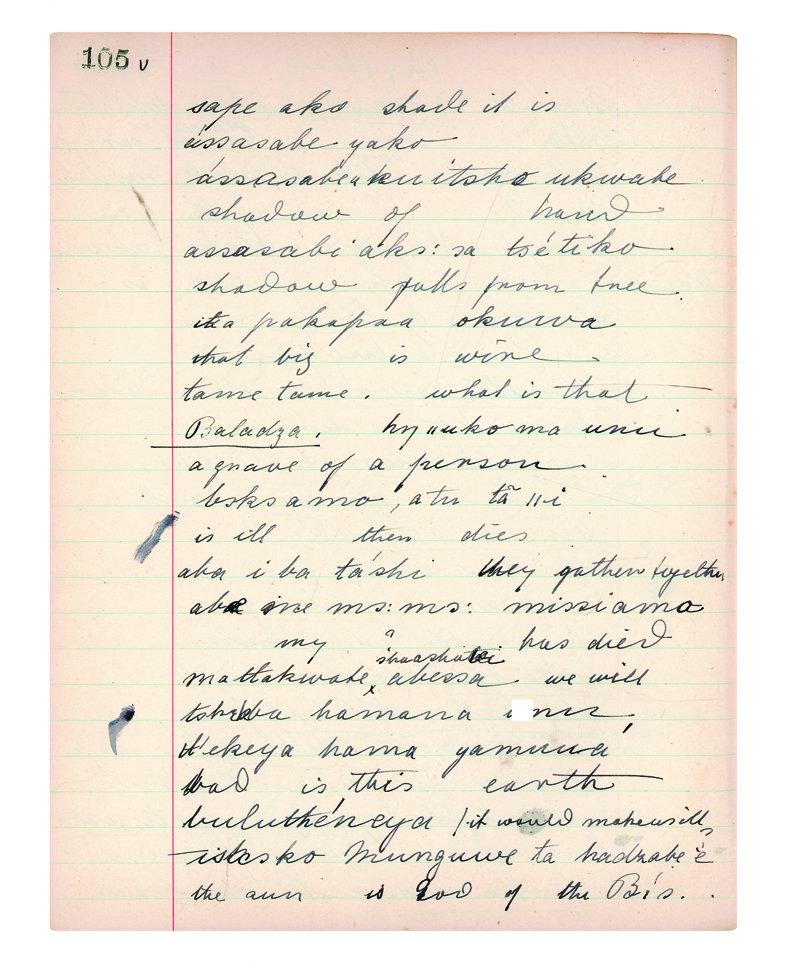 105 v
sape ako shade it is
ássasabe yako
ássasabe kuitsho ukwabe
shadow of hand
assasabi aks: sa tsétiko
shadow falls from tree
ita pakapaa okuwa
that big is wine
tame tame. what is that
Baladza. hy"uko ma unii
a grave of a person
bsksamo, atu tã //i
is ill then dies
aba i ba táshi they gather together
aba ine ms: ms: missiamo
my ? has died
mattakwabe abessa we will
hamana
t'ekeya hama yamuwá
bad is this earth
buluthéneya / it would make us ill,
isksko Munguwe ta hadzabe'è
the sun is God of the Bís.